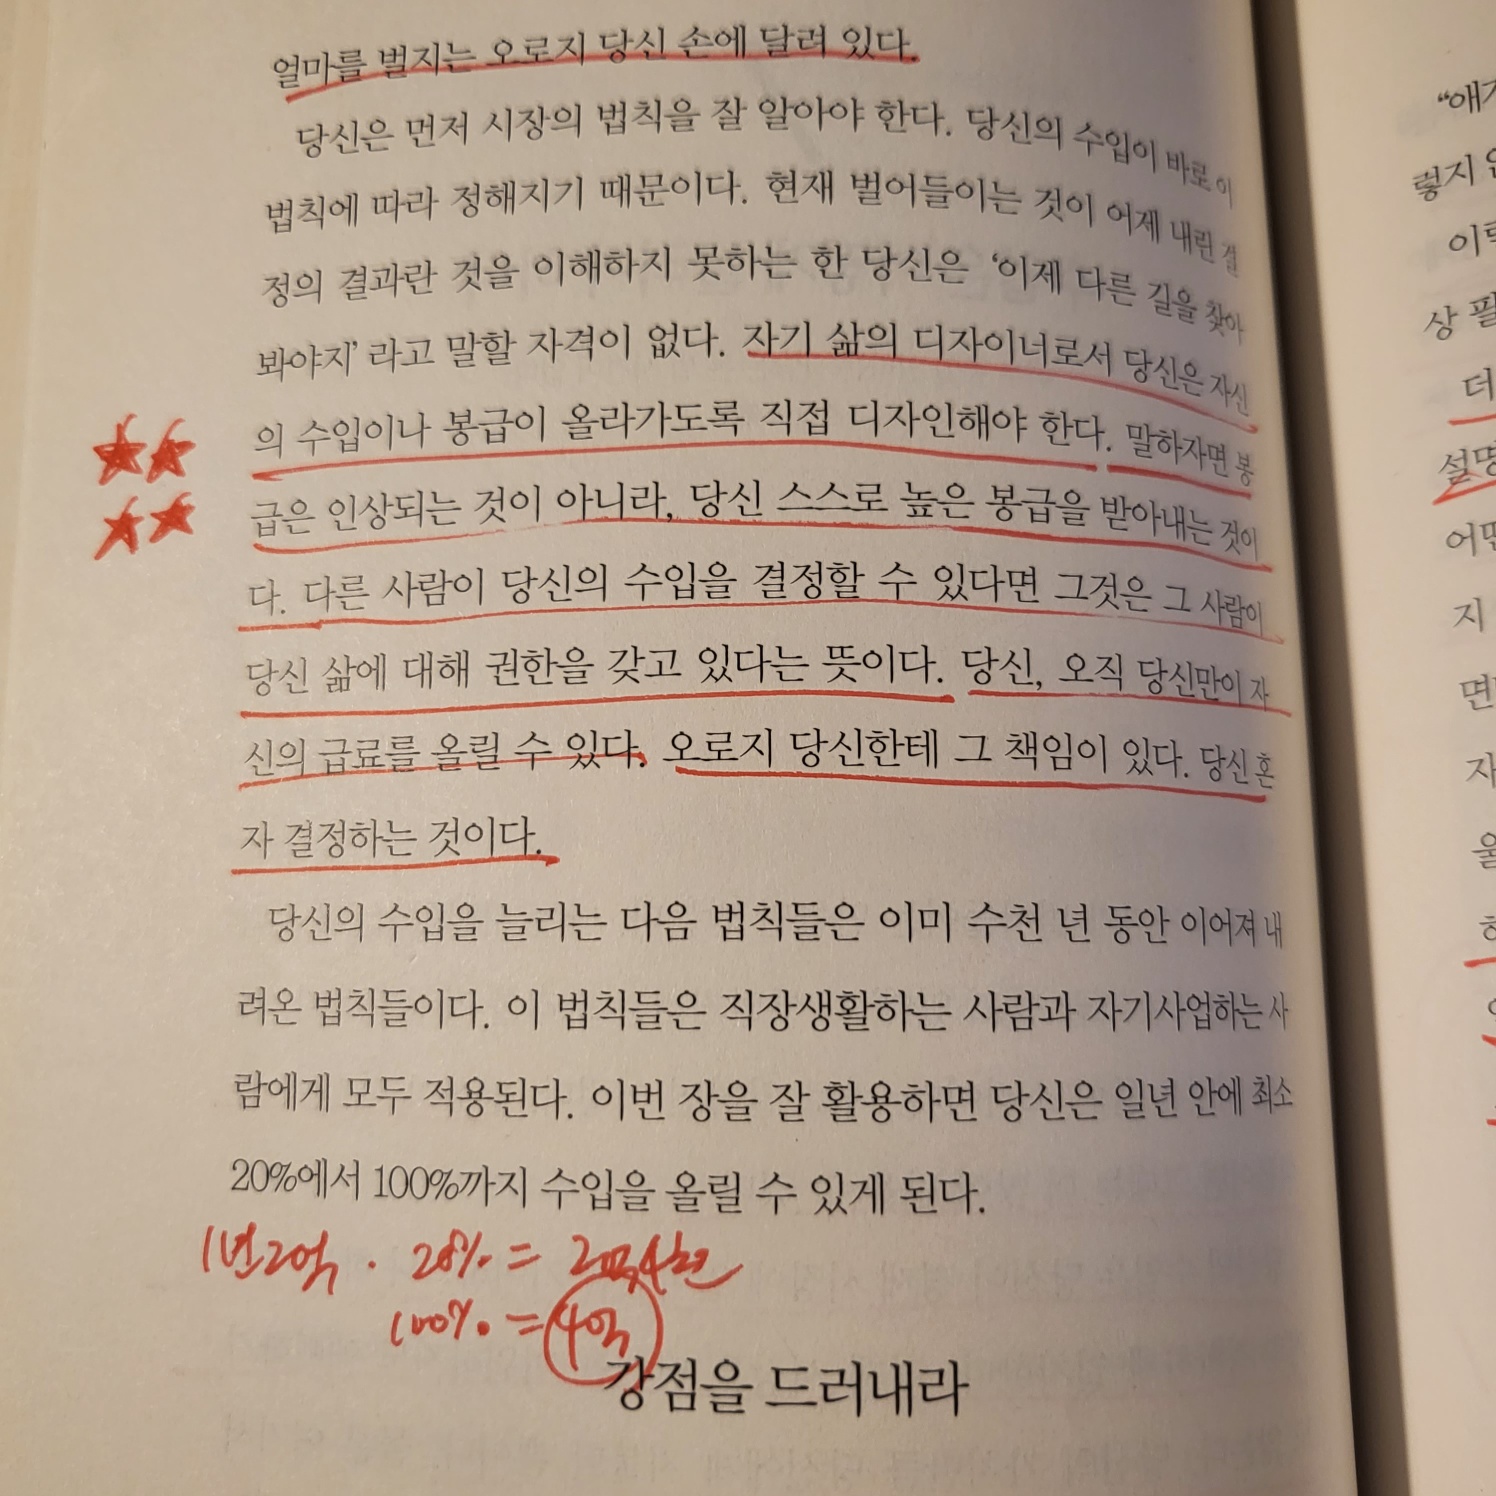 얼마를 벌지는 오로지 당신 손에 달려 있다.
당신은 먼저 시장의 법칙을 잘 알아야 한다. 당신의 수입이 바로 이
법칙에 따라 정해지기 때문이다. 현재 벌어들이는 것이 어제 내린 결
정의 결과란 것을 이해하지 못하는 한 당신은 ‘이제 다른 길을 찾아
봐야지’ 라고 말할 자격이 없다. 자기 삶의 디자이너로서 당신은 자신
의 수입이나 봉급이 올라가도록 직접 디자인해야 한다. 말하자면 봉
급은 인상되는 것이 아니라, 당신 스스로 높은 봉급을 받아내는 것이
다. 다른 사람이 당신의 수입을 결정할 수 있다면 그것은 그 사람이
당신 삶에 대해 권한을 갖고 있다는 뜻이다. 당신, 오직 당신만이 자
신의 급료를 올릴 수 있다. 오로지 당신한테 그 책임이 있다. 당신 혼
자 결정하는 것이다.
당신의 수입을 늘리는 다음 법칙들은 이미 수천 년 동안 이어져 내
려온 법칙들이다. 이 법칙들은 직장생활하는 사람과 자기사업하는 사
람에게 모두 적용된다. 이번 장을 잘 활용하면 당신은 일년 안에 최소
20%에서 100%까지 수입을 올릴 수 있게 된다.
1년 2억 . 20% = 2억4천
100% = 4억
강점을 드러내라
“애기
렇지
이력
상 필
더
설명
어떤
지
면
자